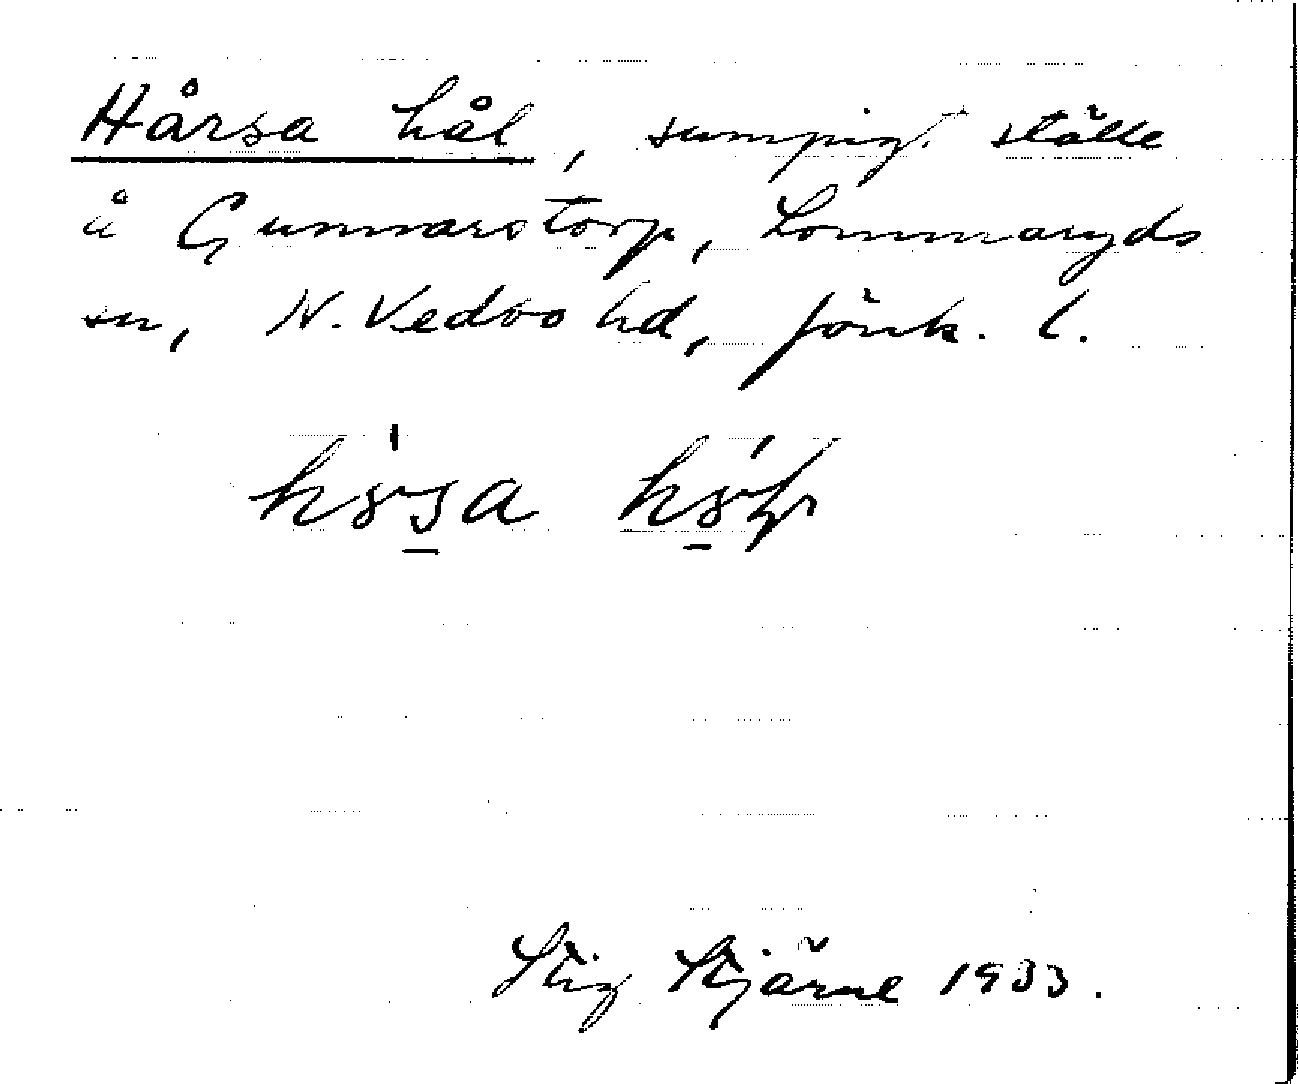 Hårsa hål, sumpigt ställe
å Gunnarstorp, Lommaryds
sn, N. Vedbo hd, Jönk. l.
Stig Stjärne 1933.